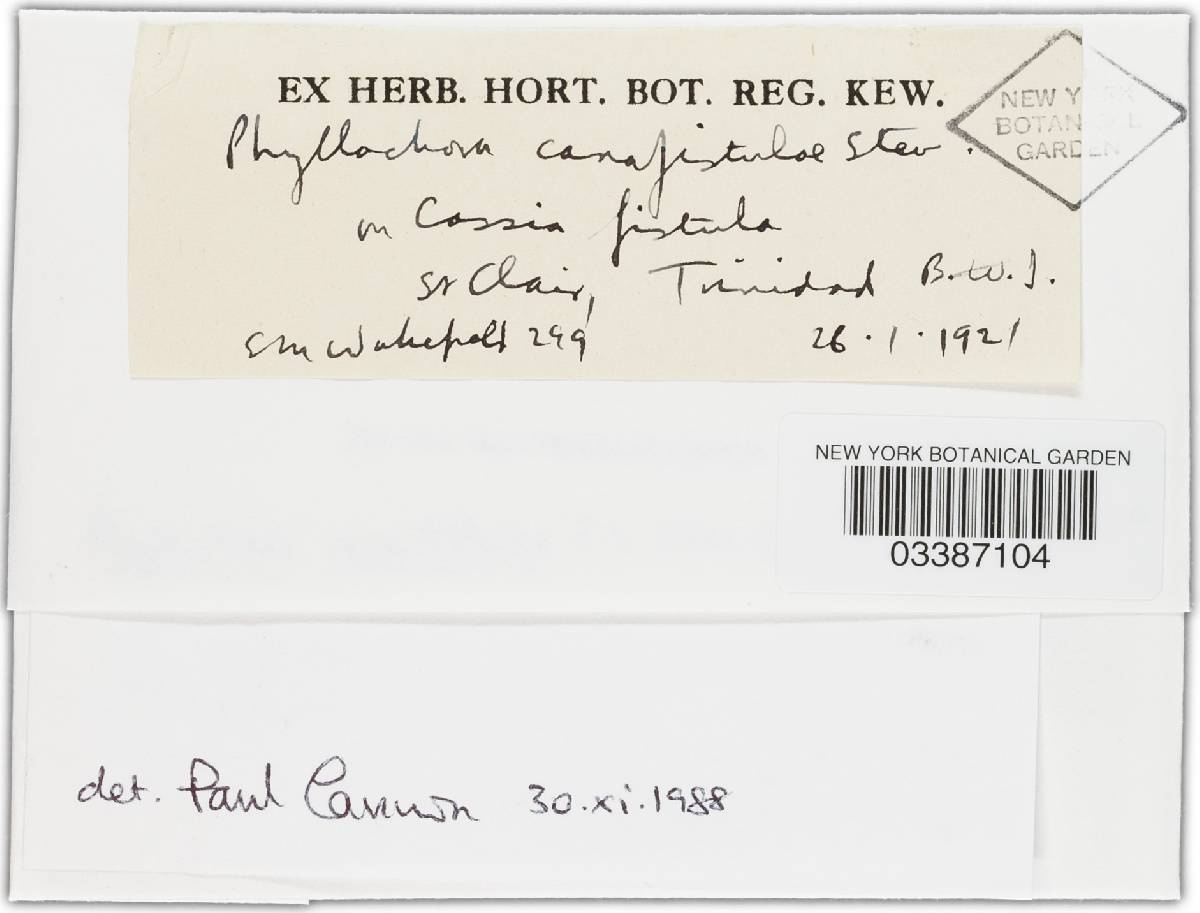 EX HERB. HORT. BOT. REG. KEW.
NEW YORK
BOTANICAL
GARDEN
Phyllachora canafistulae Stev.
on Cassia fistula
St Clair, Trinidad B.W.I.
E M Wakefield 299 26.1.1921
NEW YORK BOTANICAL GARDEN
03387104
det. Paul Cannon 30.xi.1988